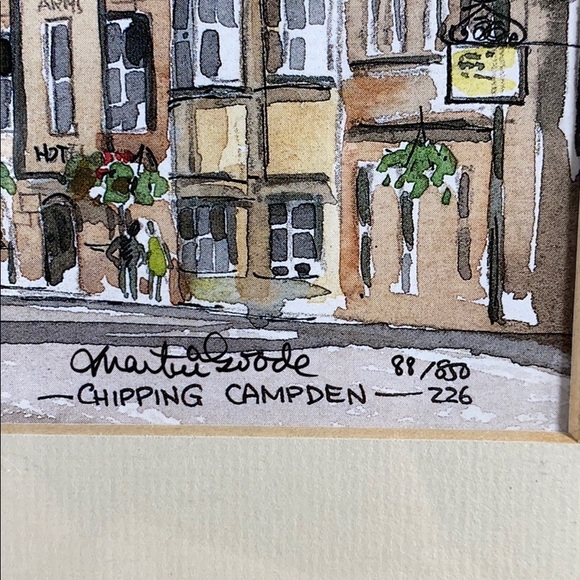 ARMS
HOTEL
Martin Goode 88/850
—CHIPPING CAMPDEN— 226